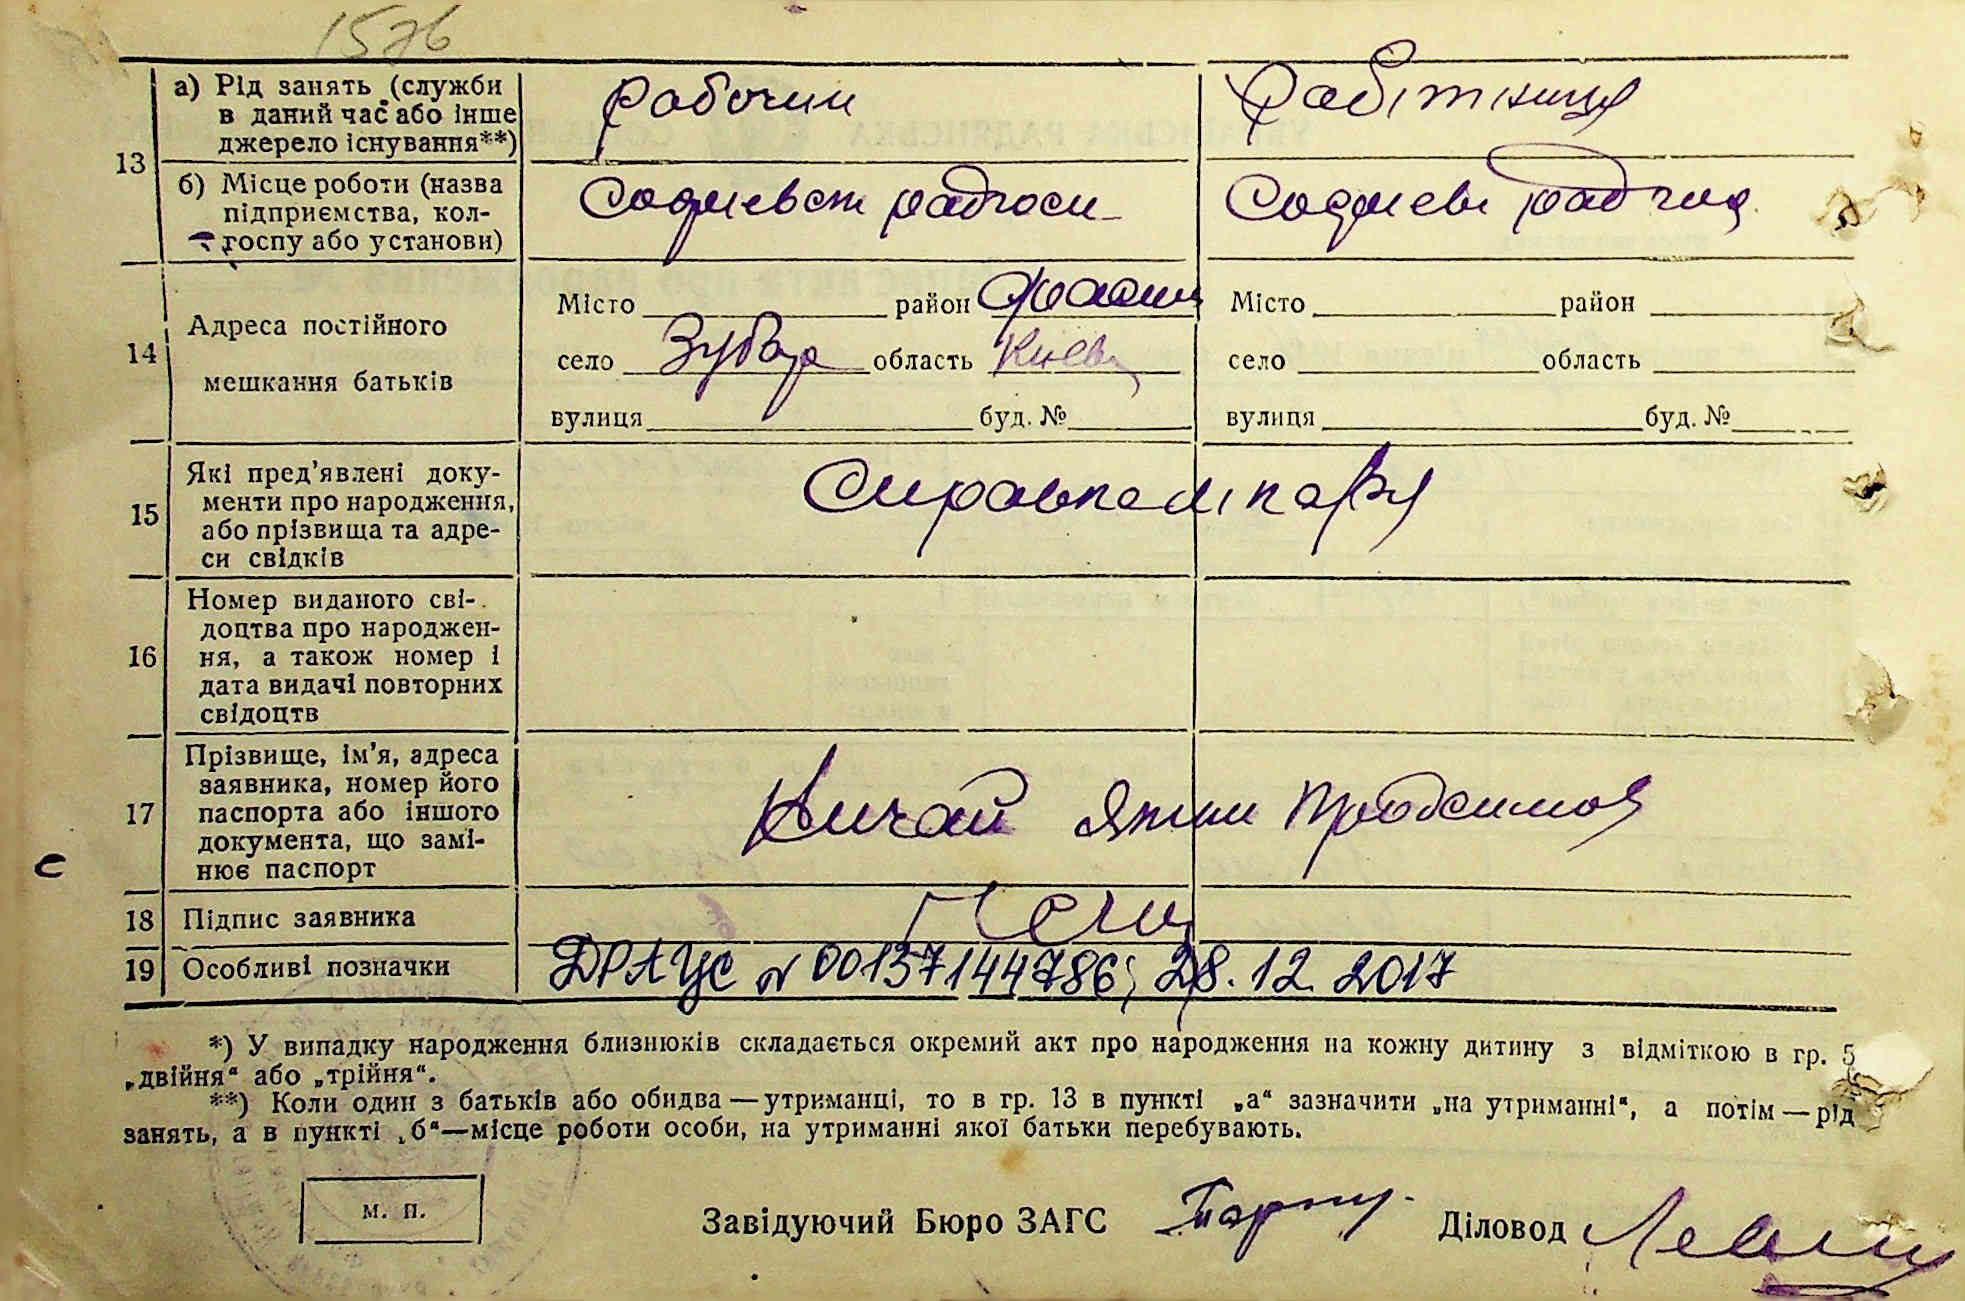 1576
13
а) Рід занять (служби
в даний час або інше
джерело існування**)
рабочий
Работніця
б) Місце роботи (назва
підприємства, кол-
госпу або установи)
радгосп
14
Адреса постійного
мешкання батьків
Місто район
село область Києвс
вулиця буд. №
Місто район
село область
вулиця буд. №
15
Які пред'явлені доку-
менти про народження,
або прізвища та адре-
си свідків
16
Номер виданого сві-
доцтва про народжен-
ня, а також номер і
дата видачі повторних
свідоцтв
17
Прізвище, ім'я, адреса
заявника, номер його
паспорта або іншого
документа, що замі-
нює паспорт
Ничай
18
Підпис заявника
19
Особливі позначки
ДРАЦС № 00137144786; 28.12.2017
*) У випадку народження близнюків складається окремий акт про народження на кожну дитину з відміткою в гр. 5
„двійня“ або „трійня“.
**) Коли один з батьків або обидва — утриманці, то в гр. 13 в пункті „а“ зазначити „на утриманні“, а потім — рід
занять, а в пункті „б“—місце роботи особи, на утриманні якої батьки перебувають.
м. п.
Завідуючий Бюро ЗАГС
Діловод